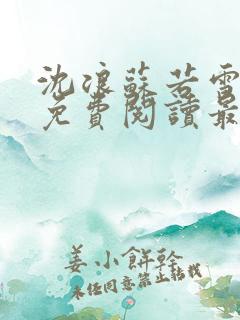 沈浪蘇若雪
免費閱讀最
姜小餅乾
未經同意禁止轉載